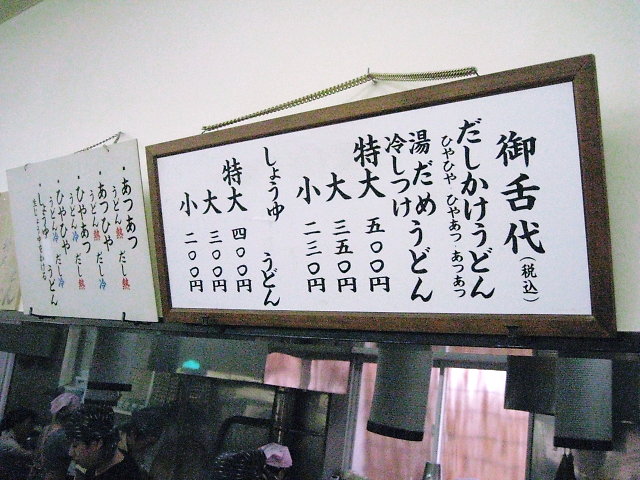 御舌代(税込)
だしかけうどん
ひやひや ひやあつ あつあつ
湯だめうどん
冷しつけ
特大 五〇〇円
大 三五〇円
小 二三〇円
しょうゆ うどん
特大 四〇〇円
大 三〇〇円
小 二〇〇円
・あつあつ
うどん熱 だし熱
・あつひや
うどん熱 だし冷
・ひやあつ
うどん冷 だし熱
・ひやひや
うどん冷 だし冷
・しょうゆ うどん